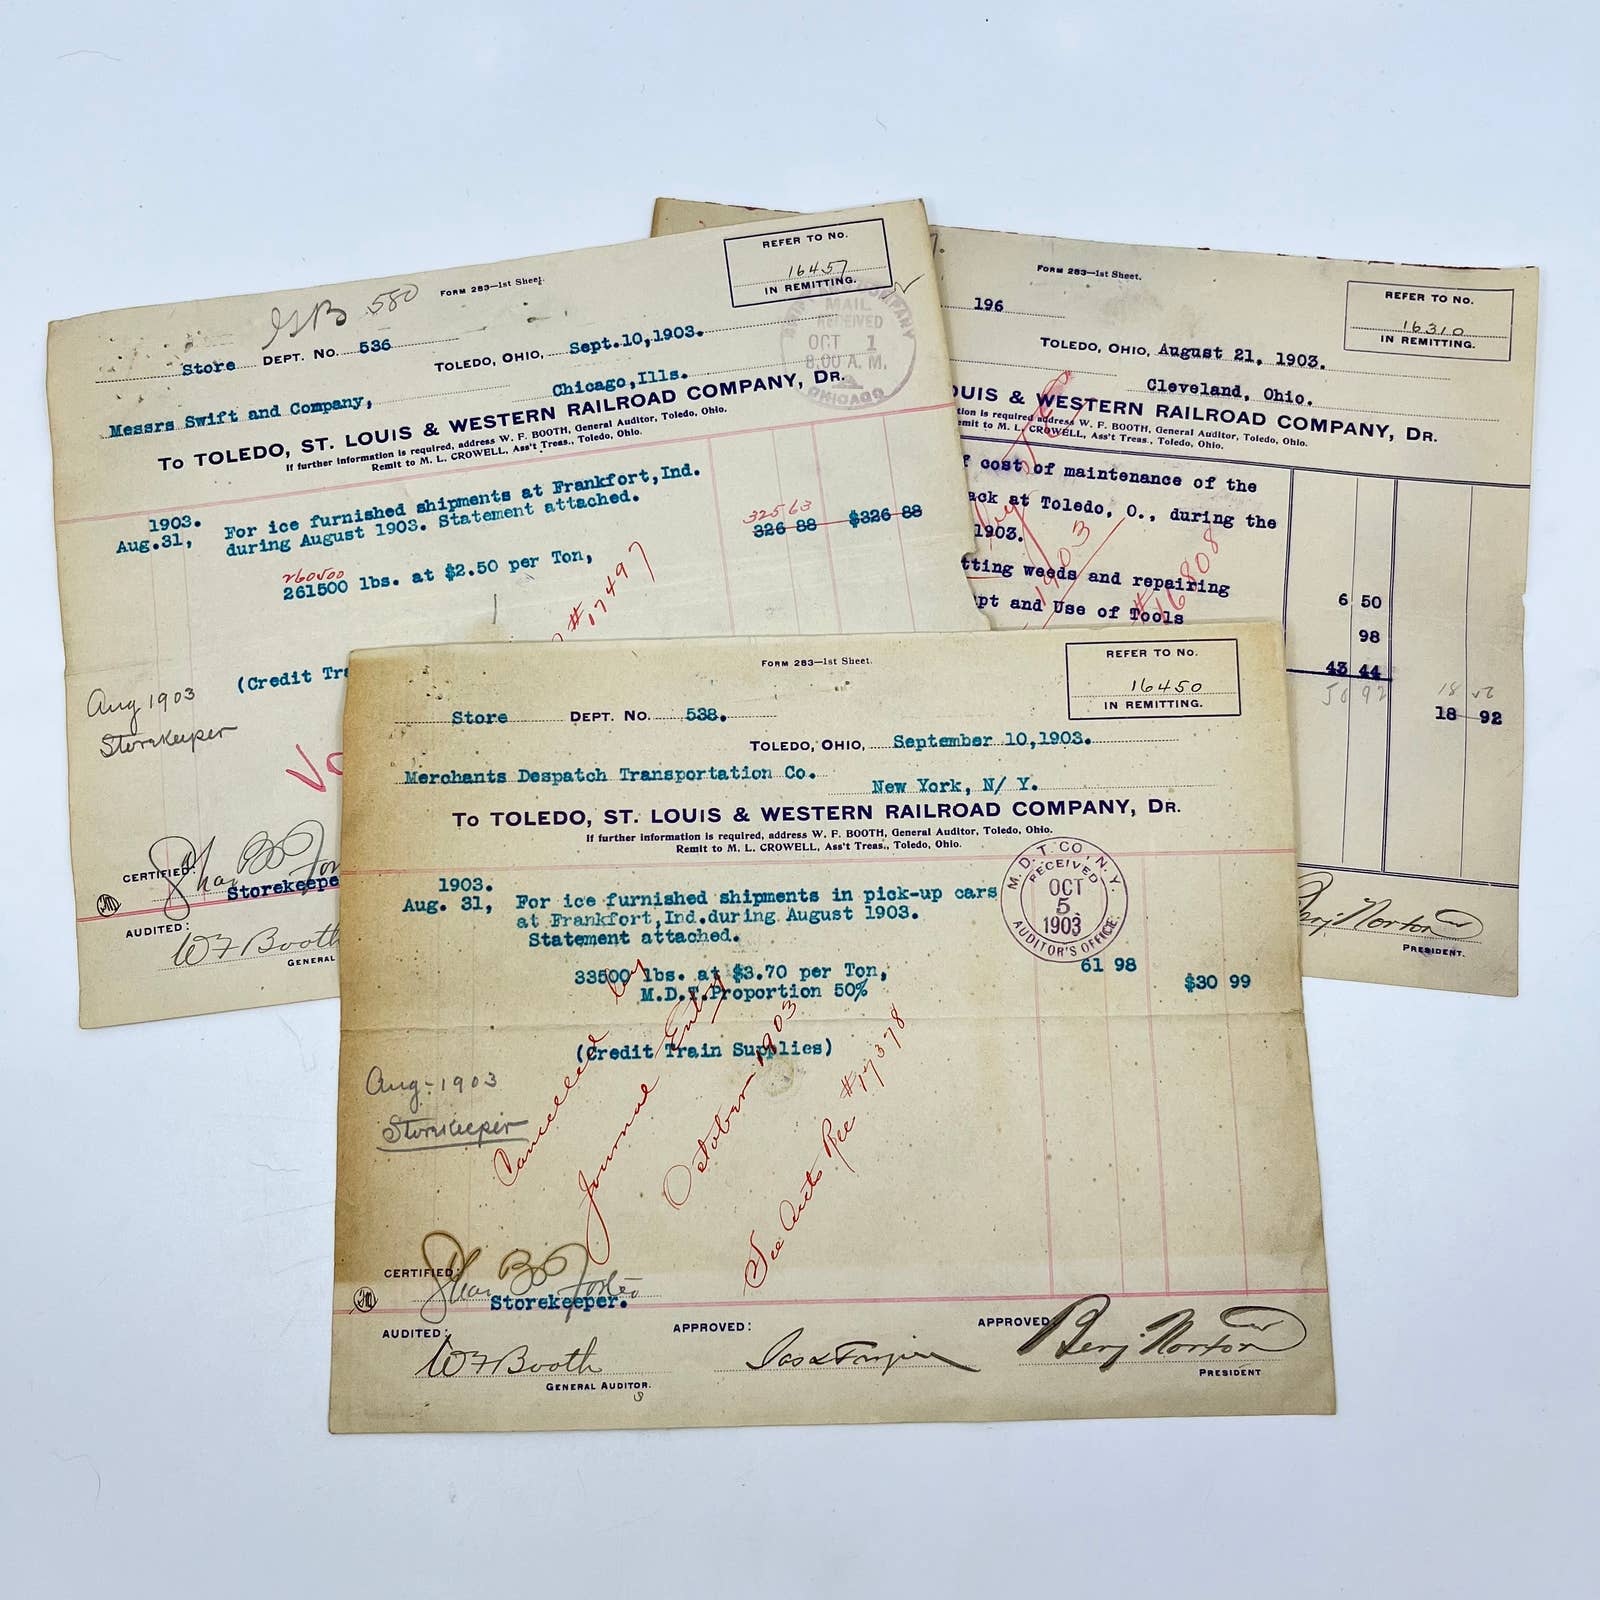 FORM 283—1st Sheet.
REFER TO No.
16457
IN REMITTING.
580
Store DEPT. No. 536
TOLEDO, OHIO, Sept.10,1903.
MAIL
RECEIVED
OCT 1
8.00 A. M.
CHICAGO
Messrs Swift and Company,
Chicago,Ills.
To TOLEDO, ST. LOUIS & WESTERN RAILROAD COMPANY, DR.
If further information is required, address W. F. BOOTH, General Auditor, Toledo, Ohio.
Remit to M. L. CROWELL, Ass't Treas., Toledo, Ohio.
1903.
Aug.31, For ice furnished shipments at Frankfort,Ind.
during August 1903. Statement attached.
325 63
326 88 $326 88
260500
261500 lbs. at $2.50 per Ton,
#17497
(Credit Tra
Aug 1903
Storekeeper
CERTIFIED:
Storekeepe
AUDITED:
W F Booth
GENERAL
FORM 283—1st Sheet.
REFER TO No.
16310
IN REMITTING.
196
TOLEDO, OHIO, August 21, 1903.
Cleveland, Ohio.
OUIS & WESTERN RAILROAD COMPANY, DR.
tion is required address W. F. BOOTH, General Auditor, Toledo, Ohio.
emit to M. L. CROWELL, Ass't Treas., Toledo, Ohio.
f cost of maintenance of the
ack at Toledo, O., during the
1903.
tting weeds and repairing
6 50
pt and Use of Tools
98
43 44
50 92
18 92
1903
#16808
Benj. Norton
PRESIDENT.
FORM 283—1st Sheet.
REFER TO No.
16450
IN REMITTING.
Store DEPT. No. 538.
TOLEDO, OHIO, September 10,1903.
Merchants Despatch Transportation Co.
New York, N/ Y.
To TOLEDO, ST. LOUIS & WESTERN RAILROAD COMPANY, DR.
If further information is required, address W. F. BOOTH, General Auditor, Toledo, Ohio.
Remit to M. L. CROWELL, Ass't Treas., Toledo, Ohio.
M. D. T. CO., N. Y.
RECEIVED
OCT
5
1903
AUDITOR'S OFFICE.
1903.
Aug. 31, For ice furnished shipments in pick-up cars
at Frankfort,Ind.during August 1903.
Statement attached.
33500 lbs. at $3.70 per Ton, 61 98
M.D.T.Proportion 50% $30 99
(Credit Train Supplies)
Cancelled by
Journal Entry
October 1903
See Aud's Rec #17378
Aug-1903
Storekeeper
CERTIFIED:
Storekeeper.
AUDITED:
W F Booth
GENERAL AUDITOR.
APPROVED:
APPROVED:
Benj Norton
PRESIDENT